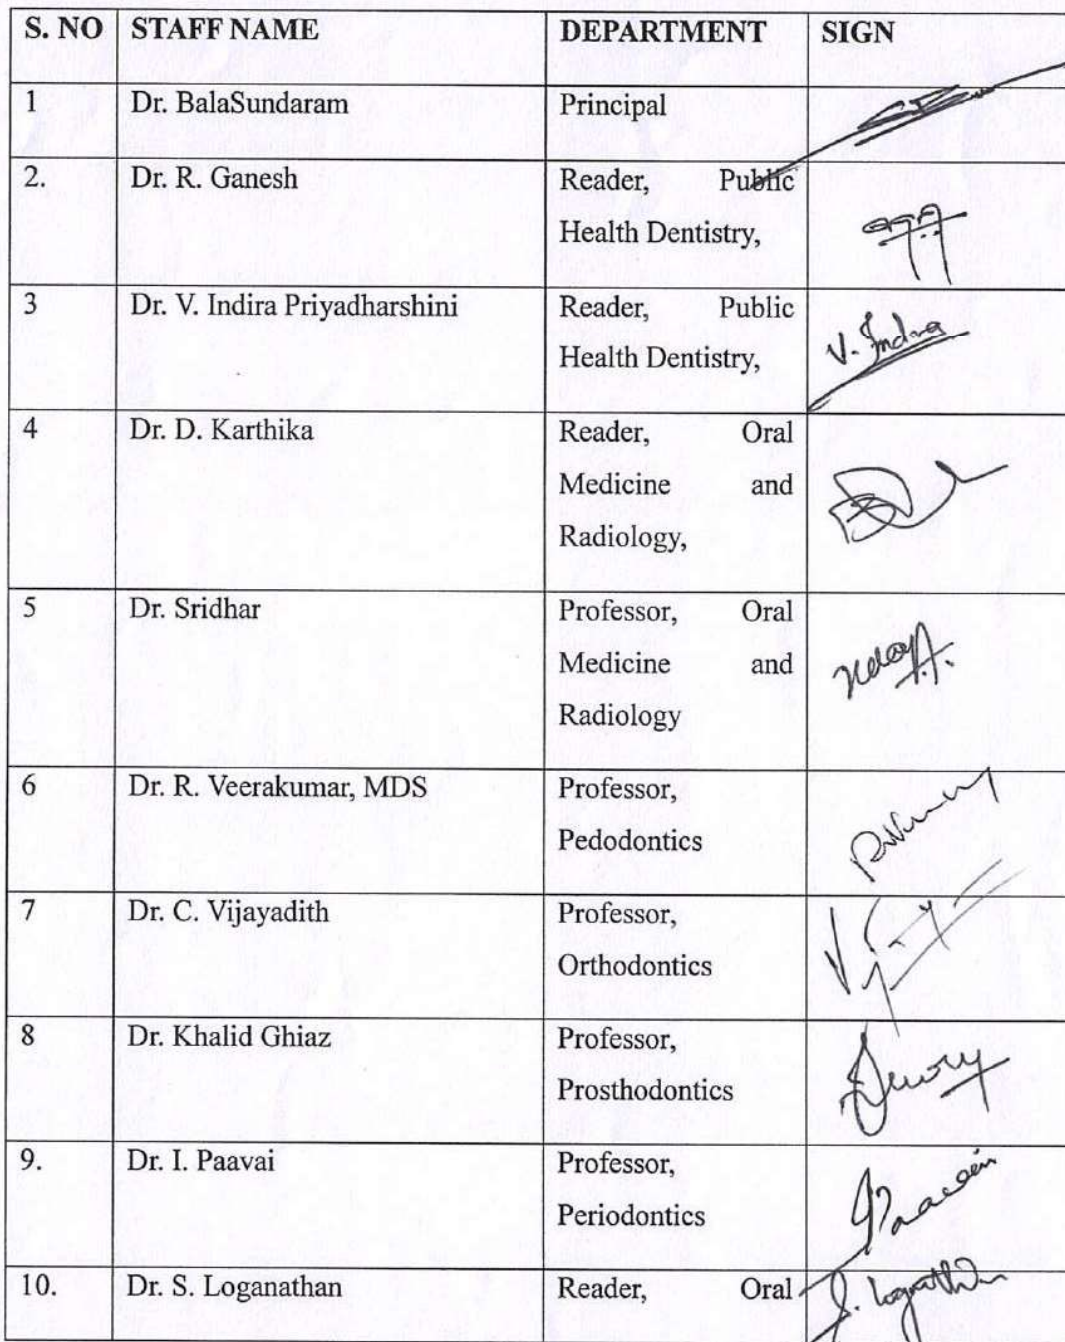 S. NO STAFF NAME DEPARTMENT SIGN
1 Dr. BalaSundaram Principal
2. Dr. R. Ganesh Reader, Public
Health Dentistry,
3 Dr. V. Indira Priyadharshini Reader, Public
Health Dentistry, V. Indira
4 Dr. D. Karthika Reader, Oral
Medicine and
Radiology,
5 Dr. Sridhar Professor, Oral
Medicine and
Radiology
6 Dr. R. Veerakumar, MDS Professor,
Pedodontics
7 Dr. C. Vijayadith Professor,
Orthodontics
8 Dr. Khalid Ghiaz Professor,
Prosthodontics
9. Dr. I. Paavai Professor,
Periodontics
10. Dr. S. Loganathan Reader, Oral